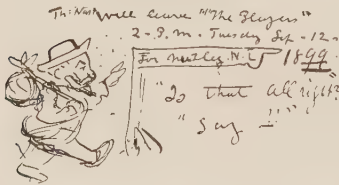 Th: Nast will leave "The Players"
2 - P. M. Tuesday Sep - 12 -
For Nutley. N. J. 1899
"Is that all right?
" Say - " "